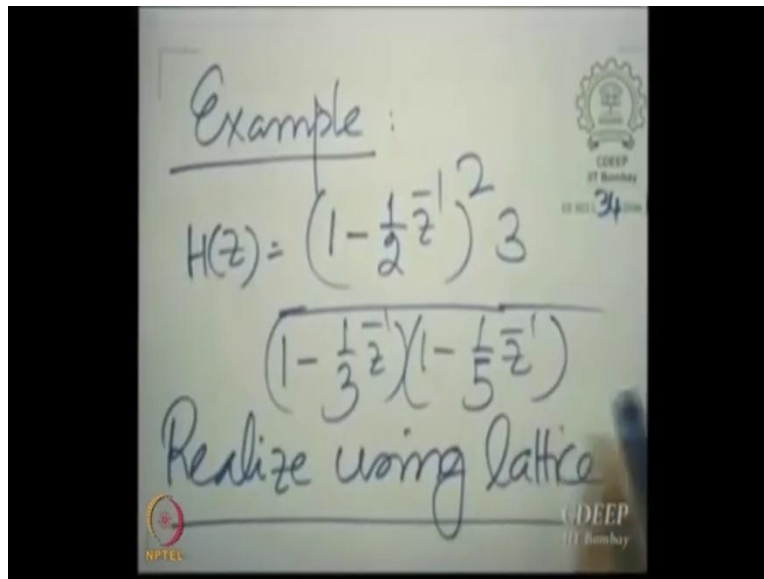 Example:
CDEEP
IIT Bombay
34
H(Z) = (1 - 1/2 z^-1)^2 3
(1 - 1/3 z^-1)(1 - 1/5 z^-1)
Realize using lattice
CDEEP
IIT Bombay
NPTEL